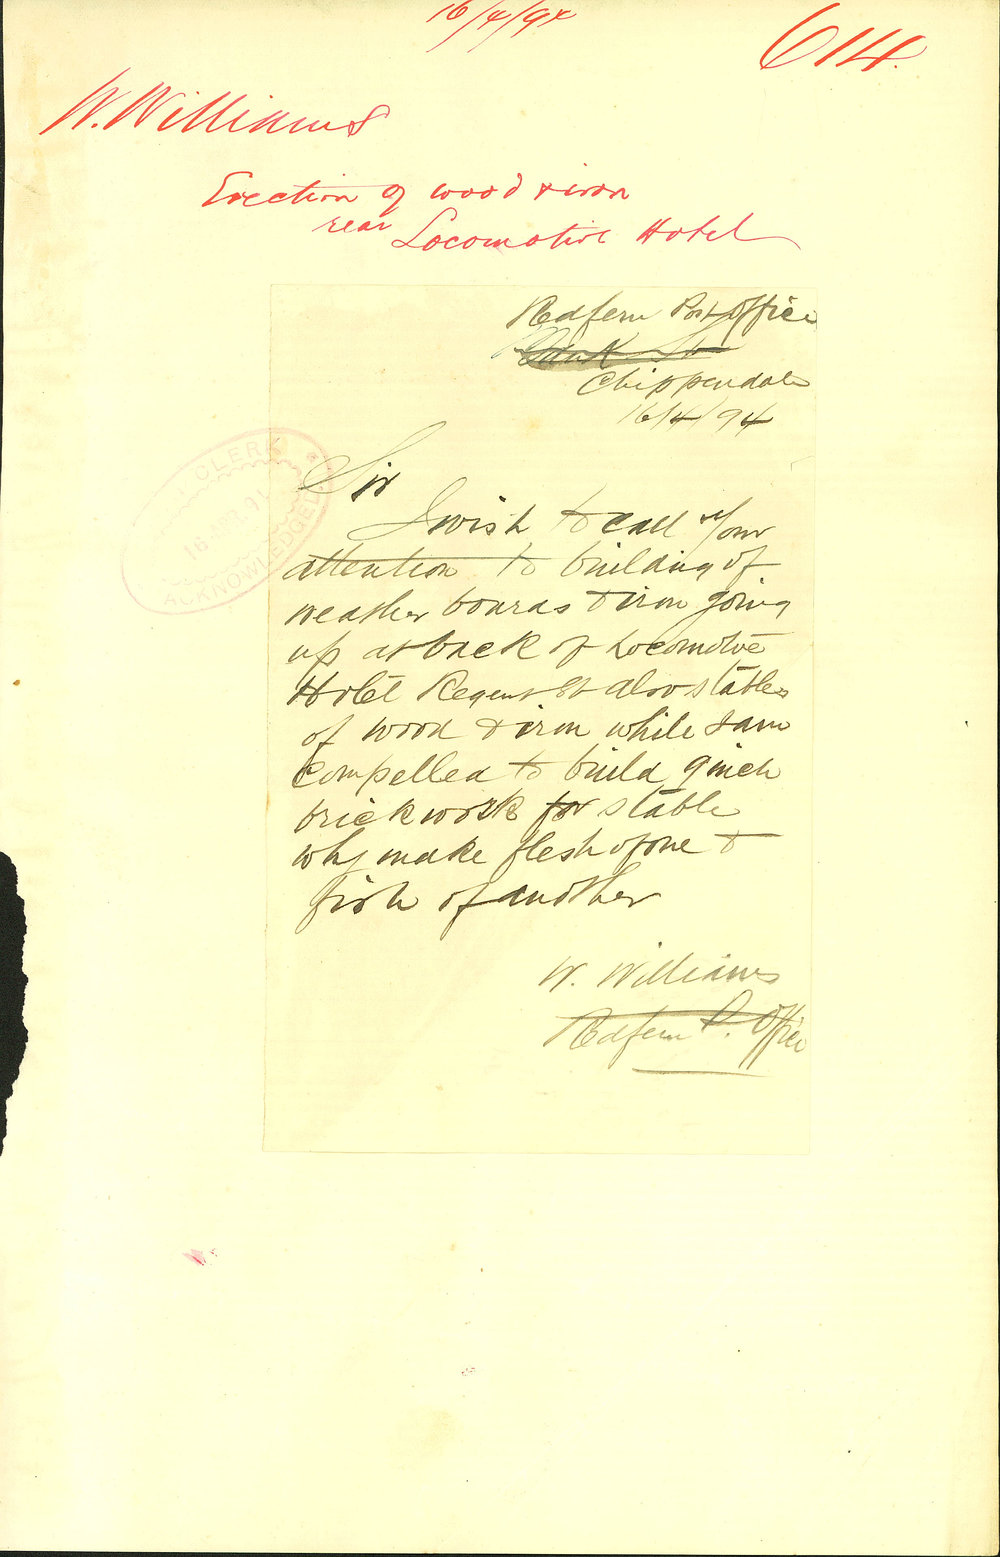 16/4/94
614.
W. Williams
Erection of wood & iron
rear Locomotive Hotel
Redfern Post Office
Bank St
Chippendale
16/4/94
CLERK
16 APR 94
ACKNOWLEDGED
Sir
I wish to call Your
attention to building of
weather boards & iron going
up at back of Locomotive
Hotel Regent St also stables
of wood & iron while I am
compelled to build 9 inch
brickwork for stable
why make flesh of one &
fish of another
W. Williams
Redfern P. Office